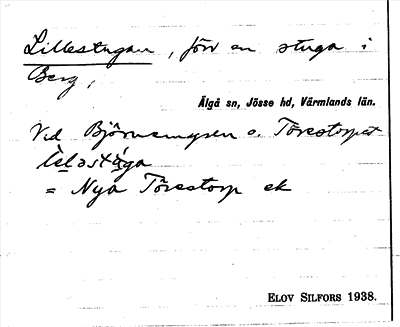 Lillestugan, förr en stuga i
Berg,
Älgå sn, Jösse hd, Värmlands län.
Vid Björnemyren o. Torestorpet
= Nya Torestorp ek
ELOV SILFORS 1938.